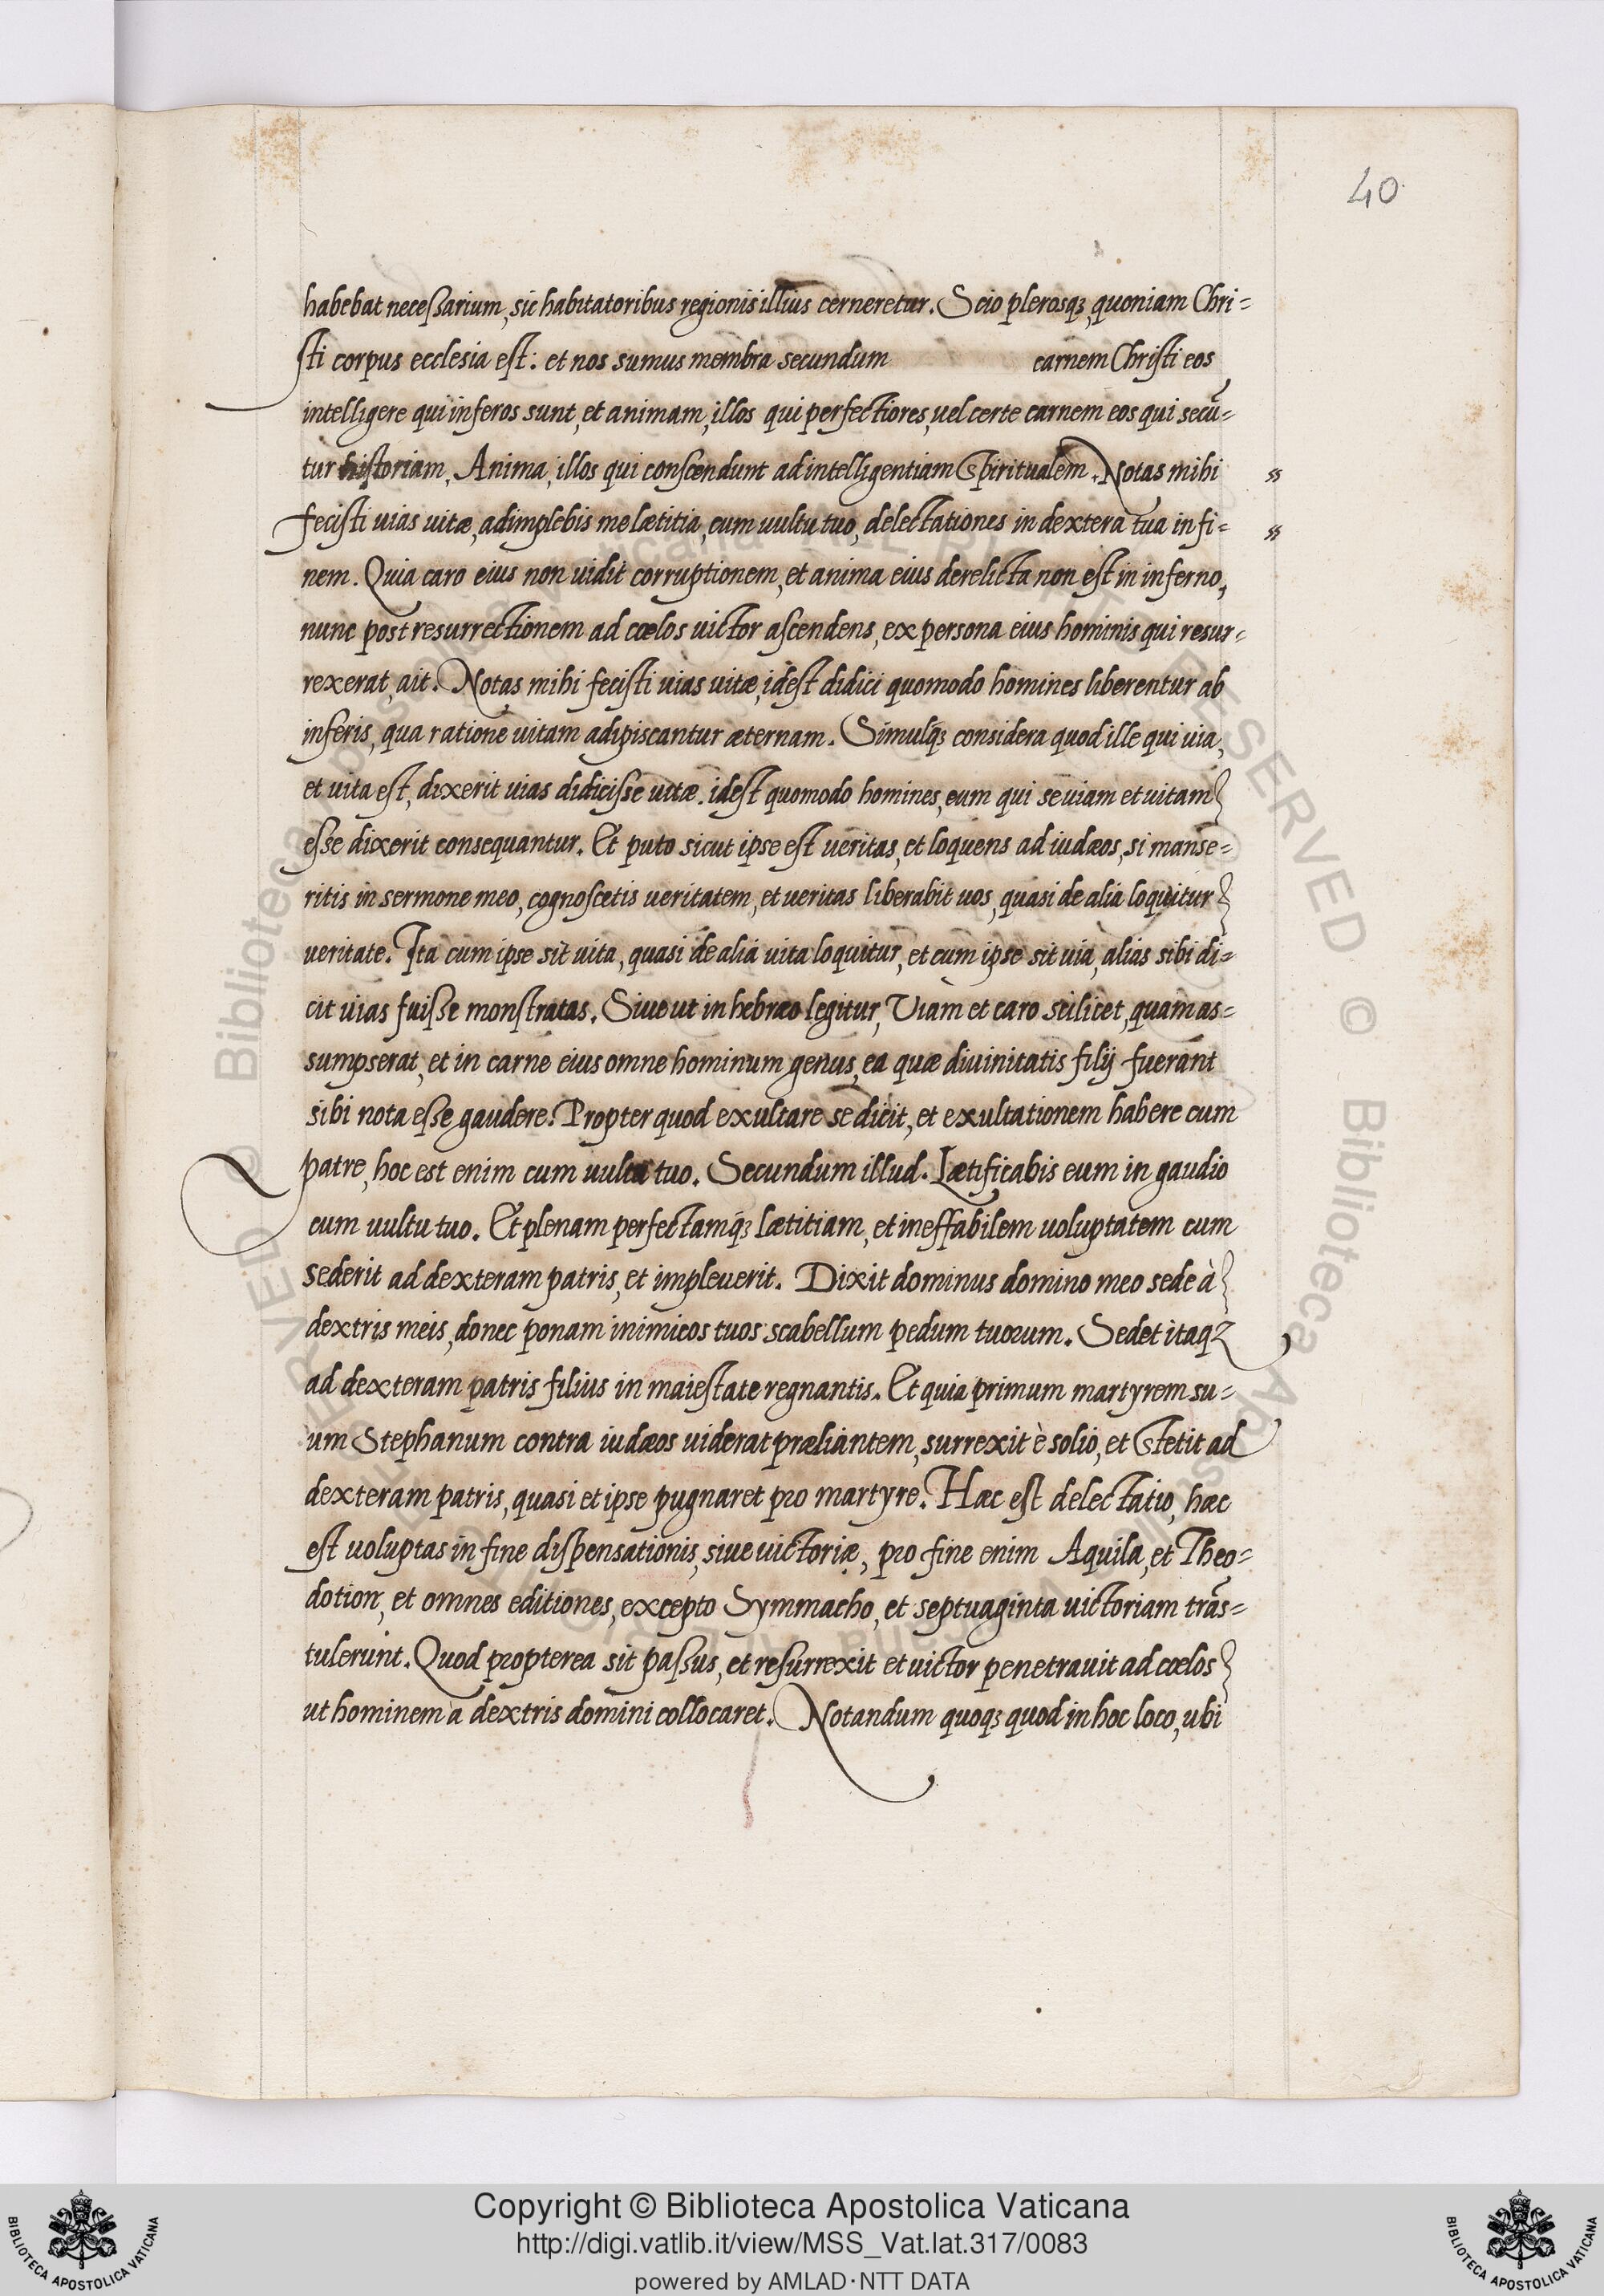 40
habebat neceſsarium, sic habitatoribus regionis illius cerneretur. Scio plerosqꝫ, quoniam Chri=
ſti corpus ecclesia eſt: et nos sumus membra secundum carnem Chriſti eos
intelligere qui inferos sunt, et animam, illos qui perfectiores, uel certe carnem eos qui secū=
tur hiſtoriam, Anima, illos qui conſcendunt ad intelligentiam Spiritualem. Notas mihi
feciſti uias uitæ, adimplebis me lætitia, cum uultu tuo, delectationes in dextera tua in fi=
nem. Quia caro eius non uidit corruptionem, et anima eius derelicta non eſt in inferno,
nunc post resurrectionem ad cœlos uictor aſcendens, ex persona eius hominis qui resur=
rexerat, ait. Notas mihi feciſti uias uitæ, ideſt didici quomodo homines liberentur ab
inferis, qua ratione uitam adipiscantur æternam. Simulqꝫ considera quod ille qui uia,
et uita eſt, dixerit uias didiciſse uitæ. ideſt quomodo homines, eum qui se uiam et uitam
eſse dixerit consequantur. Et puto sicut ipse eſt ueritas, et loquens ad iudæos, si manse=
ritis in sermone meo, cognoſcetis ueritatem, et ueritas liberabit uos, quasi de alia loquitur
ueritate. Ita cum ipse sit uita, quasi de alia uita loquitur, et cum ipse sit uia, alias sibi di=
cit uias fuiſse monſtratas. Siue ut in hebræo legitur, Viam et caro scilicet, quam as=
sumpserat, et in carne eius omne hominum genus, ea quæ diuinitatis filij fuerant
sibi nota eſse gaudere. Propter quod exultare se dicit, et exultationem habere cum
patre, hoc est enim cum uultu tuo. Secundum illud. Lætificabis eum in gaudio
cum uultu tuo. Et plenam perfectamqꝫ lætitiam, et ineffabilem uoluptatem cum
sederit ad dexteram patris, et impleuerit. Dixit dominus domino meo sede à
dextris meis, donec ponam inimicos tuos scabellum pedum tuorum. Sedet itaqꝫ
ad dexteram patris filius in maieſtate regnantis. Et quia primum martyrem su=
um Stephanum contra iudæos uiderat præliantem, surrexit è solio, et Stetit ad
dexteram patris, quasi et ipse pugnaret pro martyre. Hæc eſt delectatio, hæc
eſt uoluptas in fine diſpensationis, siue uictoriæ, pro fine enim Aquila, et Theo=
dotion, et omnes editiones, excepto Symmacho, et septuaginta uictoriam trās=
tulerunt. Quod propterea sit paſsus, et reſurrexit et uictor penetrauit ad cœlos
ut hominem à dextris domini collocaret. Notandum quoqꝫ quod in hoc loco, ubi
Copyright © Biblioteca Apostolica Vaticana
http://digi.vatlib.it/view/MSS_Vat.lat.317/0083
powered by AMLAD·NTT DATA
BIBLIOTECA APOSTOLICA VATICANA
BIBLIOTECA APOSTOLICA VATICANA